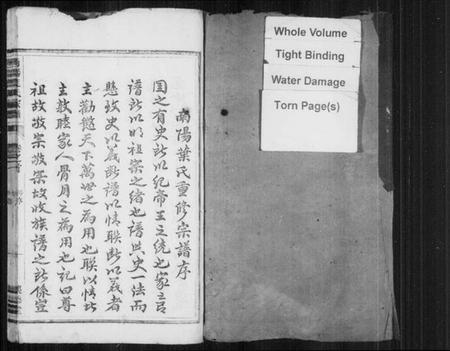 南陽葉氏重修宗譜序
國之有史所以紀帝王之統也家之有
譜所以明祖宗之緒也譜與史一法而
懸故史以義斷譜以情聯斷以義者
主勸懲天下萬世之為用也聯以情者
主敦睦家人骨月之為用也記曰尊
祖故敬宗敬宗故收族譜之所係豈
Whole Volume
Tight Binding
Water Damage
Torn Page(s)